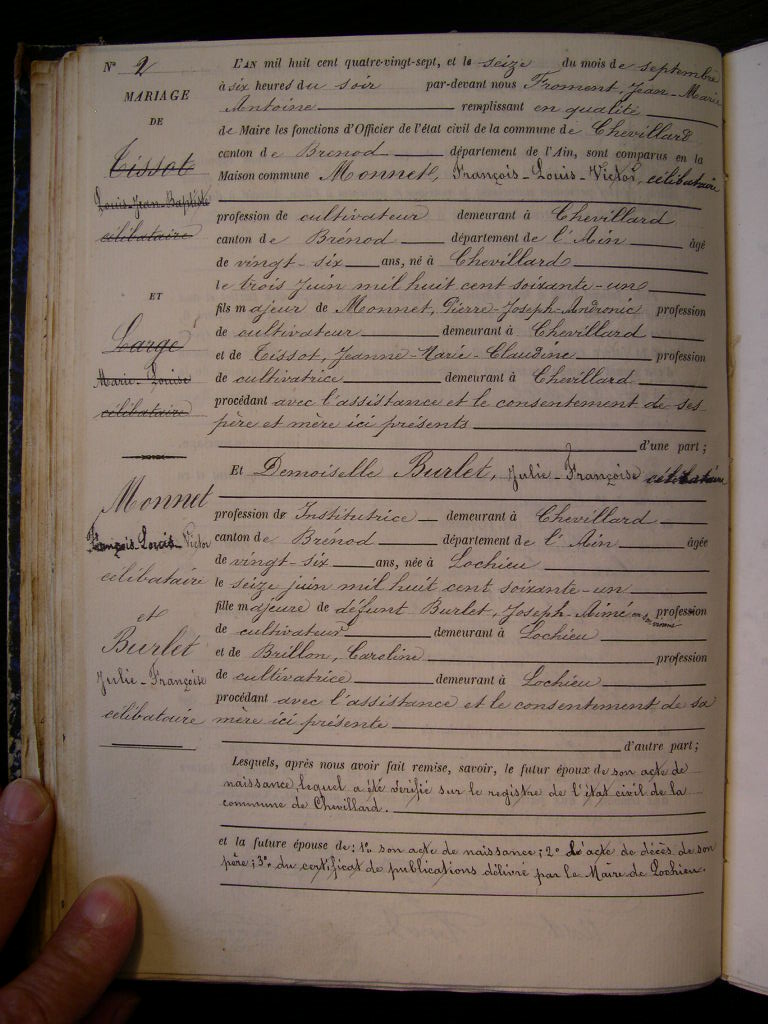 N° 2
MARIAGE
DE
Tissot
Louis-Jean-Baptiste
célibataire
ET
Large
Marie-Louise
célibataire
Monnet
François-Louis-Victor
célibataire
et
Burlet
Julie-Françoise
célibataire
L'AN mil huit cent quatre-vingt-sept, et le seize du mois de septembre
à six heures du soir par-devant nous Froment, Jean-Marie
Antoine remplissant en qualité
de Maire les fonctions d'Officier de l'état civil de la commune de Chevillard
canton de Brenod département de l'Ain, sont comparus en la
Maison commune Monnet, François-Louis-Victor, célibataire
profession de cultivateur demeurant à Chevillard
canton de Brénod département de l'Ain âgé
de vingt-six ans, né à Chevillard
le trois Juin mil huit cent soixante-un
fils majeur de Monnet, Pierre-Joseph-Andronic profession
de cultivateur demeurant à Chevillard
et de Tissot, Jeanne-Marie-Claudine profession
de cultivatrice demeurant à Chevillard
procédant avec l'assistance et le consentement de ses
père et mère ici présents
d'une part ;
Et Demoiselle Burlet, Julie-Françoise célibataire
profession de Institutrice demeurant à Chevillard
canton de Brenod département de l'Ain âgée
de vingt-six ans, née à Lochieu
le seize juin mil huit cent soixante-un
fille majeure de défunt Burlet, Joseph-Aimé en son vivant profession
de cultivateur demeurant à Lochieu
et de Brillon, Caroline profession
de cultivatrice demeurant à Lochieu
procédant avec l'assistance et le consentement de sa
mère ici présente
d'autre part ;
Lesquels, après nous avoir fait remise, savoir, le futur époux de son acte de
naissance lequel a été vérifié sur le registre de l'état civil de la
commune de Chevillard.
et la future épouse de : 1° son acte de naissance ; 2° l'acte de décès de son
père ; 3° du certificat de publications délivré par le Maire de Lochieu.